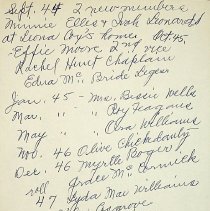 Sept. 44 2 new members
Minnie Elles & Leonard
at Leona Coy's home Oct. 45,
Effie Moore 2nd vice
Rachel Hunt Chaplain
Edna Mc Bride
Jan. 45 - Mrs. Bessie Wells
Mar, " " Coy Teague
May " " Ora Williams
Nov. 46 Olive
Dec. 46 Myrtle Boger
roll Grace McCormick
47 Lyda Mae Williams